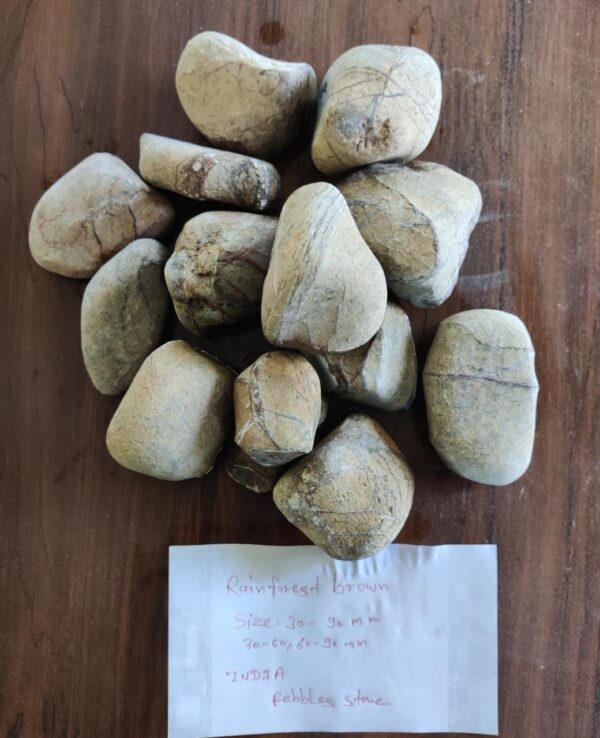 Rainforest Brown
Size: 30 - 90 mm
30-60, 60-90 mm
INDIA
Pebbles stone